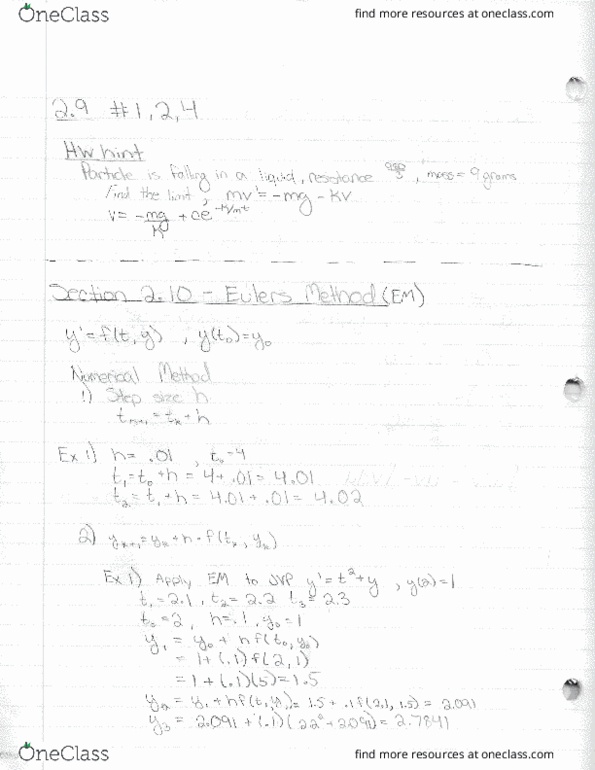 OneClass
find more resources at oneclass.com
2.9 #1,2,4
HW hint
Particle is falling in a liquid, resistance , mass = 9 grams
Find the limit, mv' = -mg - kv
v = -mg/k + ce^-k/m t
Section 2.10 - Eulers Method (EM)
y' = f(t, y) , y(t₀) = y₀
Numerical Method
1) Step size h
tₙ₊₁ = tₙ + h
Ex 1) h = .01 , t₀ = 4
t₁ = t₀ + h = 4 + .01 = 4.01
t₂ = t₁ + h = 4.01 + .01 = 4.02
2) yₙ₊₁ = yₙ + h · f(tₙ, yₙ)
Ex 1) Apply EM to IVP y' = t² + y , y(2) = 1
t₁ = 2.1 , t₂ = 2.2 t₃ = 2.3
t₀ = 2 , h = .1 , y₀ = 1
y₁ = y₀ + h f(t₀, y₀)
= 1 + (.1) f(2, 1)
= 1 + (.1)(5) = 1.5
y₂ = y₁ + h f(t, y₁) = 1.5 + .1 f(2.1, 1.5) = 2.091
y₃ = 2.091 + (.1)(2.2² + 2.091) = 2.7841
OneClass
find more resources at oneclass.com